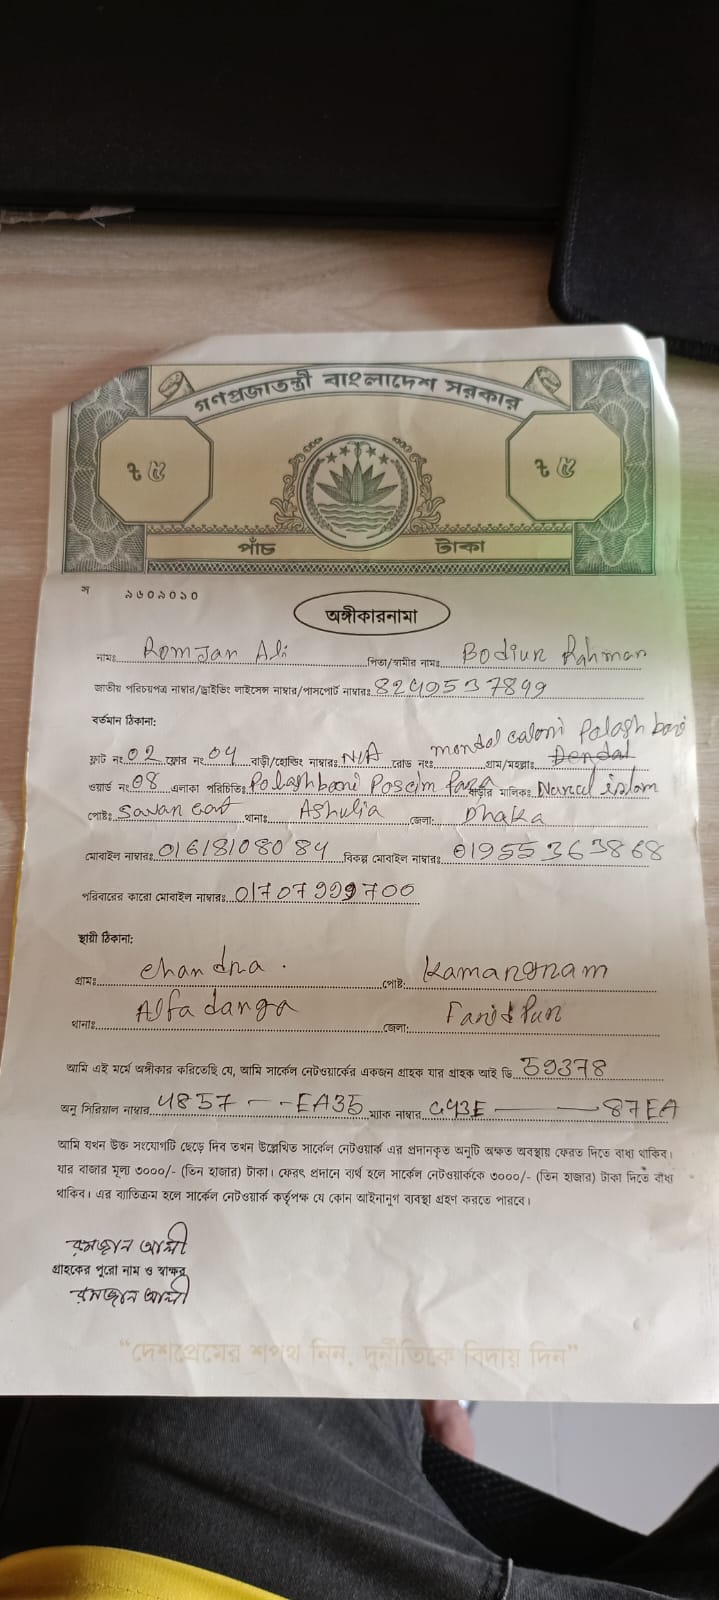 গণপ্রজাতন্ত্রী বাংলাদেশ সরকার
৳ ৫ ৳ ৫
পাঁচ টাকা
স ৯৬০৯০১০
অঙ্গীকারনামা
নামঃ Romjan Ali পিতা/স্বামীর নামঃ Bodiur Rahman
জাতীয় পরিচয়পত্র নাম্বার/ড্রাইভিং লাইসেন্স নাম্বার/পাসপোর্ট নাম্বারঃ 8240537899
বর্তমান ঠিকানা:
ফ্লাট নং 02 ফ্লোর নং 04 বাড়ী/হোল্ডিং নাম্বারঃ N/A রোড নংঃ mondol caloni গ্রাম/মহল্লাঃ Palash bari
ওয়ার্ড নং 08 এলাকা পরিচিতিঃ Polashbari Poscim Para বাড়ীর মালিকঃ islam
পোষ্টঃ Savar থানাঃ Ashulia জেলা: Dhaka
মোবাইল নাম্বারঃ 01618108084 বিকল্প মোবাইল নাম্বারঃ 01955363868
পরিবারের কারো মোবাইল নাম্বারঃ 01707999700
স্থায়ী ঠিকানা:
গ্রামঃ chandra পোষ্ট: Kamargram
থানাঃ Alfadanga জেলা: Faridpur
আমি এই মর্মে অঙ্গীকার করিতেছি যে, আমি সার্কেল নেটওয়ার্কের একজন গ্রাহক যার গ্রাহক আই ডি 59378
অনু সিরিয়াল নাম্বার 4857 - - EA35 ম্যাক নাম্বার C43E — 87EA
আমি যখন উক্ত সংযোগটি ছেড়ে দিব তখন উল্লেখিত সার্কেল নেটওয়ার্ক এর প্রদানকৃত অনুটি অক্ষত অবস্থায় ফেরত দিতে বাধ্য থাকিব।
যার বাজার মূল্য ৩০০০/- (তিন হাজার) টাকা। ফেরৎ প্রদানে ব্যর্থ হলে সার্কেল নেটওয়ার্ককে ৩০০০/- (তিন হাজার) টাকা দিতে বাঁধ্য
থাকিব। এর ব্যাতিক্রম হলে সার্কেল নেটওয়ার্ক কর্তৃপক্ষ যে কোন আইনানুগ ব্যবস্থা গ্রহণ করতে পারবে।
রমজান আলী
গ্রাহকের পুরো নাম ও স্বাক্ষর
রমজান আলী
"দেশপ্রেমের শপথ নিন, দুর্নীতিকে বিদায় দিন"